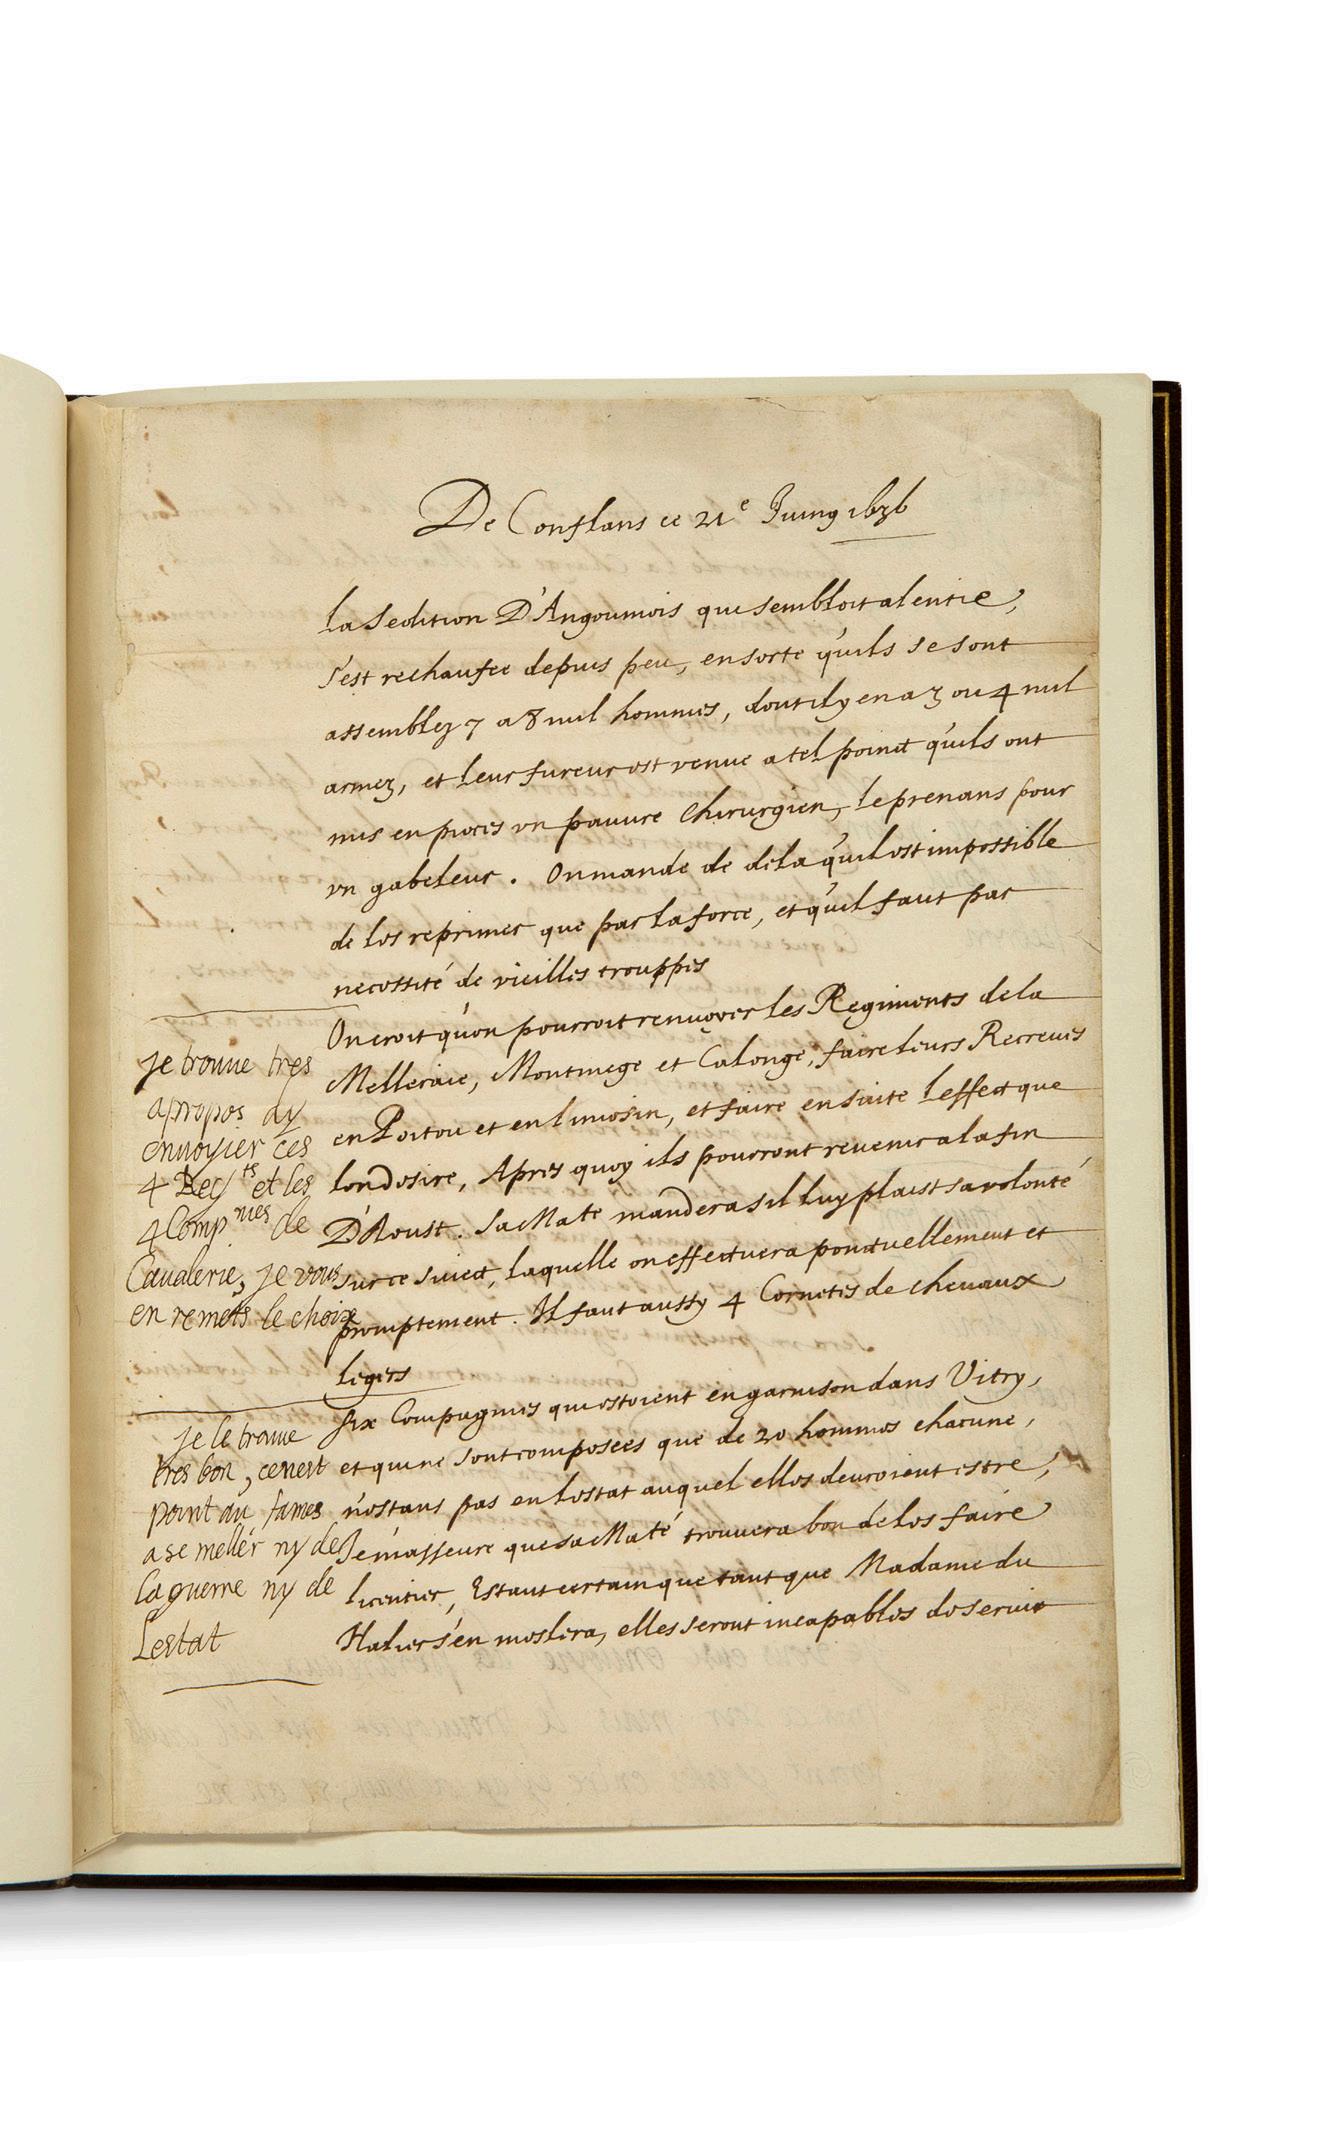 De Conflans ce 21e Juing 1636
La Sedition D'Angoumois qui sembloit alentie,
s'est rechaufee depuis peu, ensorte qu'ils se sont
assemblez 7 a 8 mil hommes, dont il y en a 3 ou 4 mil
armez, et leur fureur est venue a tel poinct qu'ils ont
mis en pieces un pauvre Chirurgien, le prenans pour
un gabeleur. On mande de dela qu'il est impossible
de les reprimer que par la force, et qu'il faut par
necessité de vieilles trouppes
On croit qu'on pourroit renvoyer les Regiments de la
Melleraie, Montmege et Calonge, faire leurs Recreues
en Poitou et en Limosin, et faire en suite l'effect que
lon desire, Apres quoy ils pourront revenir a la fin
D'Aoust. Sa Mate mandera s'il luy plaist sa volonté
sur ce suiect, laquelle on effectuera ponctuellement et
promptement. Il faut aussy 4 Cornetes de chevaux
legers
je trouve tres
apropos dy
envoyier ces
4 Regts et les
4 Compnies de
Cavalerie, je vous
en remets le choix
Six Compagnies qui estoient en garnison dans Vitry,
et qui ne sont composées que de 20 hommes chacune,
n'estans pas en l'estat auquel elles devroient estre,
Je m'asseure que sa Maté trouvera bon de les faire
licentier, Estant certain que tant que Madame du
Halier s'en meslera, elles seront incapables de servir
je le trouve
tres bon, cenest
point au fames
a se meller ny de
la guerre ny de
Lestat